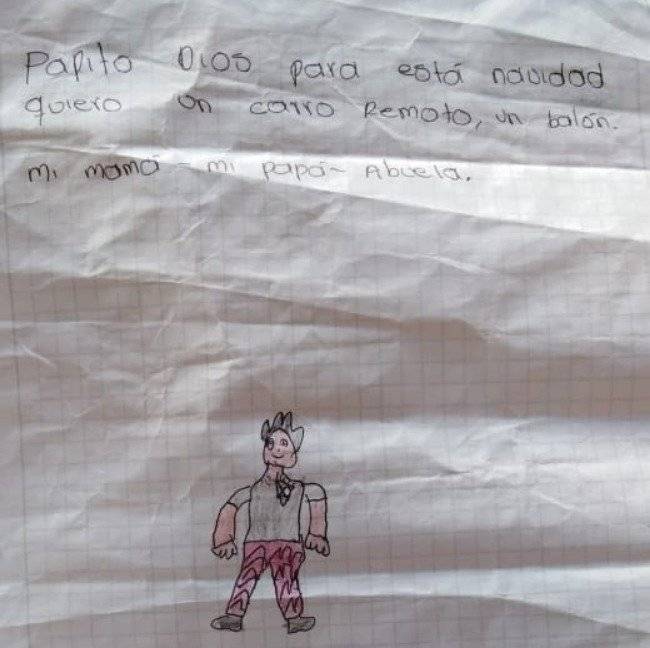 Papito Dios para está navidad
quiero un carro Remoto, un balón.
Mi mamá - mi papá - Abuela.